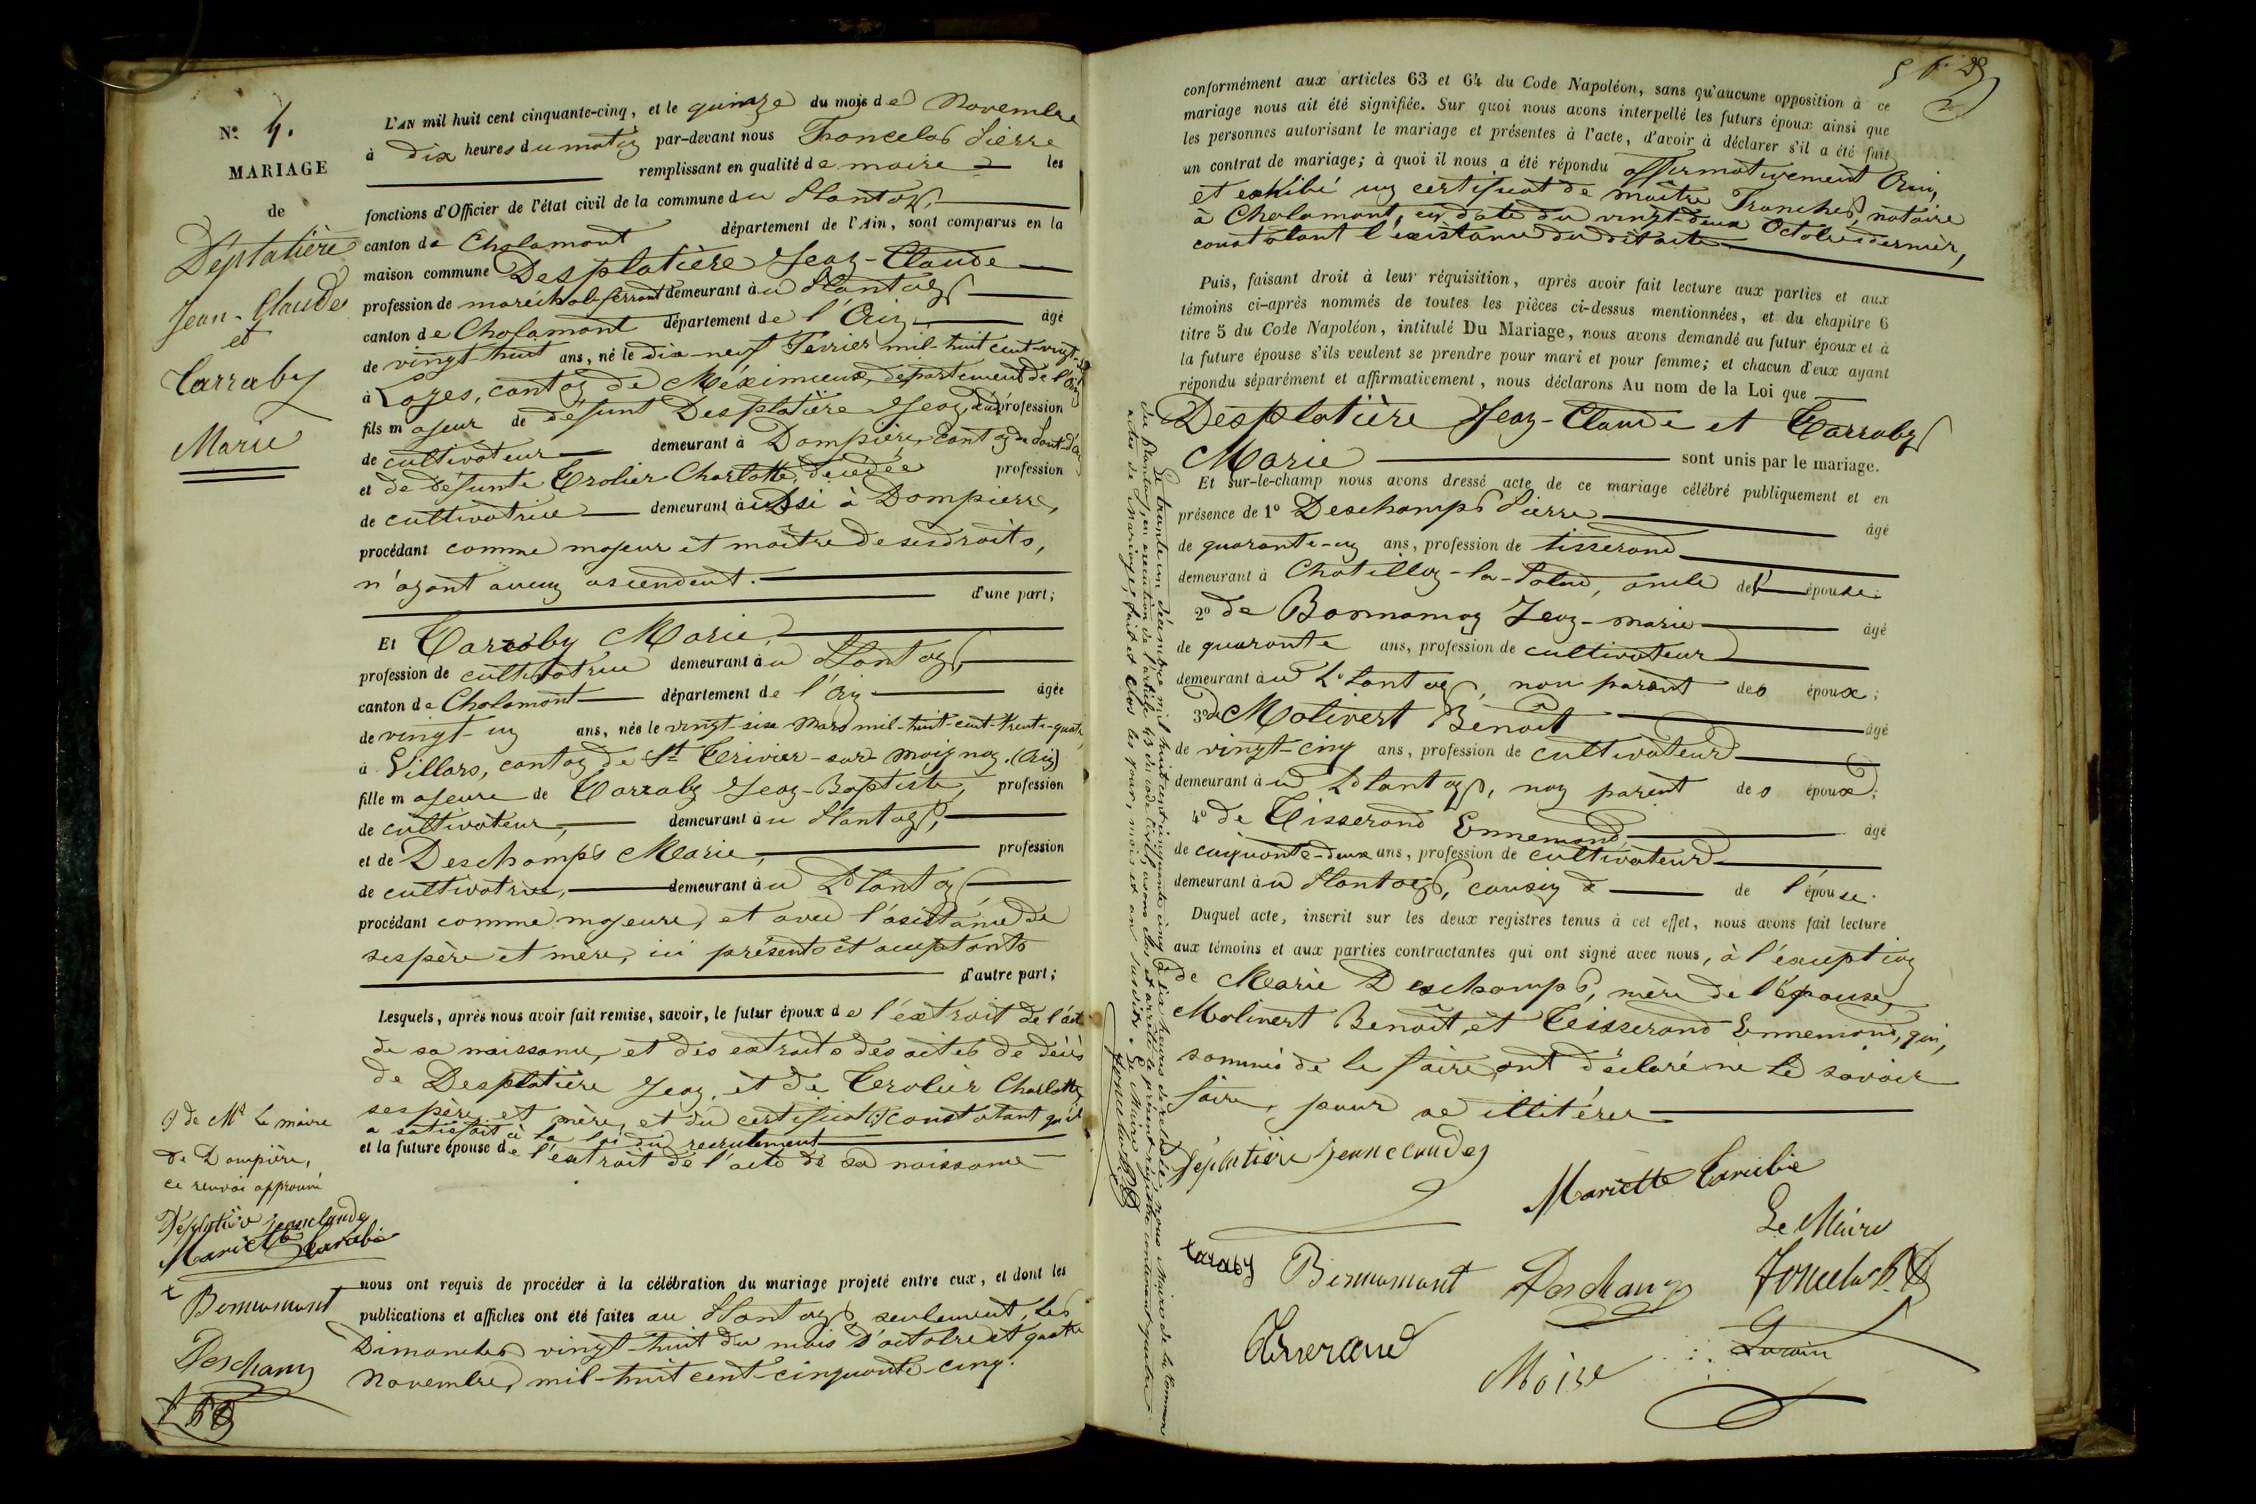 N° 4.
MARIAGE
de
Déplatière
Jean-Claude
et
Carraby
Marie
L'AN mil huit cent cinquante-cinq, et le quinze du mois de Novembre
à dix heures du matin par-devant nous Joncelas Pierre
remplissant en qualité de maire les
fonctions d'Officier de l'état civil de la commune du Plantay,
canton de Chalamont département de l'Ain, sont comparus en la
maison commune Desplatière Jean-Claude
profession de maréchal-ferrant demeurant au Plantay
canton de Chalamont département de l'Ain, âgé
de vingt-huit ans, né le dix-neuf Février mil-huit-cent-vingt-
à Loyes, canton de Méximieux, département de l'Ain
fils majeur de défunt Desplatière Jean, profession
de cultivateur demeurant à Dompière, canton de Pont d'
et de défunte Crolier Charlotte, décédée profession
de cultivatrice demeurant aussi à Dompierre,
procédant comme majeur et maître de ses droits,
n'ayant aucun ascendent.
d'une part;
Et Carraby Marie,
profession de cultivatrice demeurant au Plantay,
canton de Chalamont département de l'Ain âgée
de vingt-un ans, née le vingt-six Mars mil-huit-cent-trente-quatre
à Villars, canton de St Trivier-sur-Moignan. (Ain)
fille majeure de Carraby Jean-Baptiste, profession
de cultivateur, demeurant au Plantay,
et de Deschamps Marie, profession
de cultivatrice, demeurant au Plantay
procédant comme majeure, et avec l'asistance de
ses père et mère, ici présents et acceptants
d'autre part;
Lesquels, après nous avoir fait remise, savoir, le futur époux de l'extrait de l'acte
de sa naissance, et des extraits des actes de décès
de Desplatière Jean, et de Crolier Charlotte
ses père et mère, et du certificat (1) constatant qu'il
a satisfait à la loi du recrutement
et la future épouse de l'extrait de l'acte de sa naissance
(1) de Mr Le maire
de Dompière,
ce renvoi approuvé
Déplatière jeanclaude
Mariette Carabie
Bonnamant
Deschamp
nous ont requis de procéder à la célébration du mariage projeté entre eux, et dont les
publications et affiches ont été faites au Plantay, seulement, les
Dimanches vingt-huit du mois d'octobre et quatre
Novembre, mil-huit cent-cinquante-cinq.
conformément aux articles 63 et 64 du Code Napoléon, sans qu'aucune opposition à ce
mariage nous ait été signifiée. Sur quoi nous avons interpellé les futurs époux ainsi que
les personnes autorisant le mariage et présentes à l'acte, d'avoir à déclarer s'il a été fait
un contrat de mariage; à quoi il nous a été répondu affirmativement
et exhibé un certificat de maître Tranches, notaire
à Chalamont, en date du vingt-deux Octobre dernier,
constatant l'existance du dit acte
Puis, faisant droit à leur réquisition, après avoir fait lecture aux parties et aux
témoins ci-après nommés de toutes les pièces ci-dessus mentionnées, et du chapitre 6
titre 5 du Code Napoléon, intitulé Du Mariage, nous avons demandé au futur époux et à
la future épouse s'ils veulent se prendre pour mari et pour femme; et chacun d'eux ayant
répondu séparément et affirmativement, nous déclarons Au nom de la Loi que
Desplatière Jean-Claude et Carraby
Marie sont unis par le mariage.
Et sur-le-champ nous avons dressé acte de ce mariage célébré publiquement et en
présence de 1° Deschamps Pierre âgé
de quarante-un ans, profession de tisserand
demeurant à Chatillon-la-Palud, oncle de l'épouse;
2° de Bonnamay Jean-marie âgé
de quarante ans, profession de cultivateur
demeurant au Plantay, non parent des époux;
3° de Molivert Benoît âgé
de vingt-cinq ans, profession de cultivateur
demeurant au Plantay, non parent des époux;
4° de Tisserand Ennemond, âgé
de cinquante-deux ans, profession de cultivateur
demeurant au Plantay, cousin de l'épouse.
Duquel acte, inscrit sur les deux registres tenus à cet effet, nous avons fait lecture
aux témoins et aux parties contractantes qui ont signé avec nous, à l'éxception
de Marie Deschamps, mère de l'épouse,
Molivert Benoît, et Tissserand Ennemond, qui,
sommés de le faire, ont déclaré ne le savoir
faire, pour se illitérer
Déplatière jeanclaude
Mariette Carabie
Le Maire
Caraby Bonnamant Deschamp Joncelas P.
Moise
Le trente un décembre mil huit cent cinquante cinq à six heures du soir, nous Maire de la Commune
du Plantay, en exécution de l'article 43 du code civil, avons clos et arrêté le présent registre contenant quatre
actes de Mariages, fait et clos les jour, mois et an susdits. Le Maire